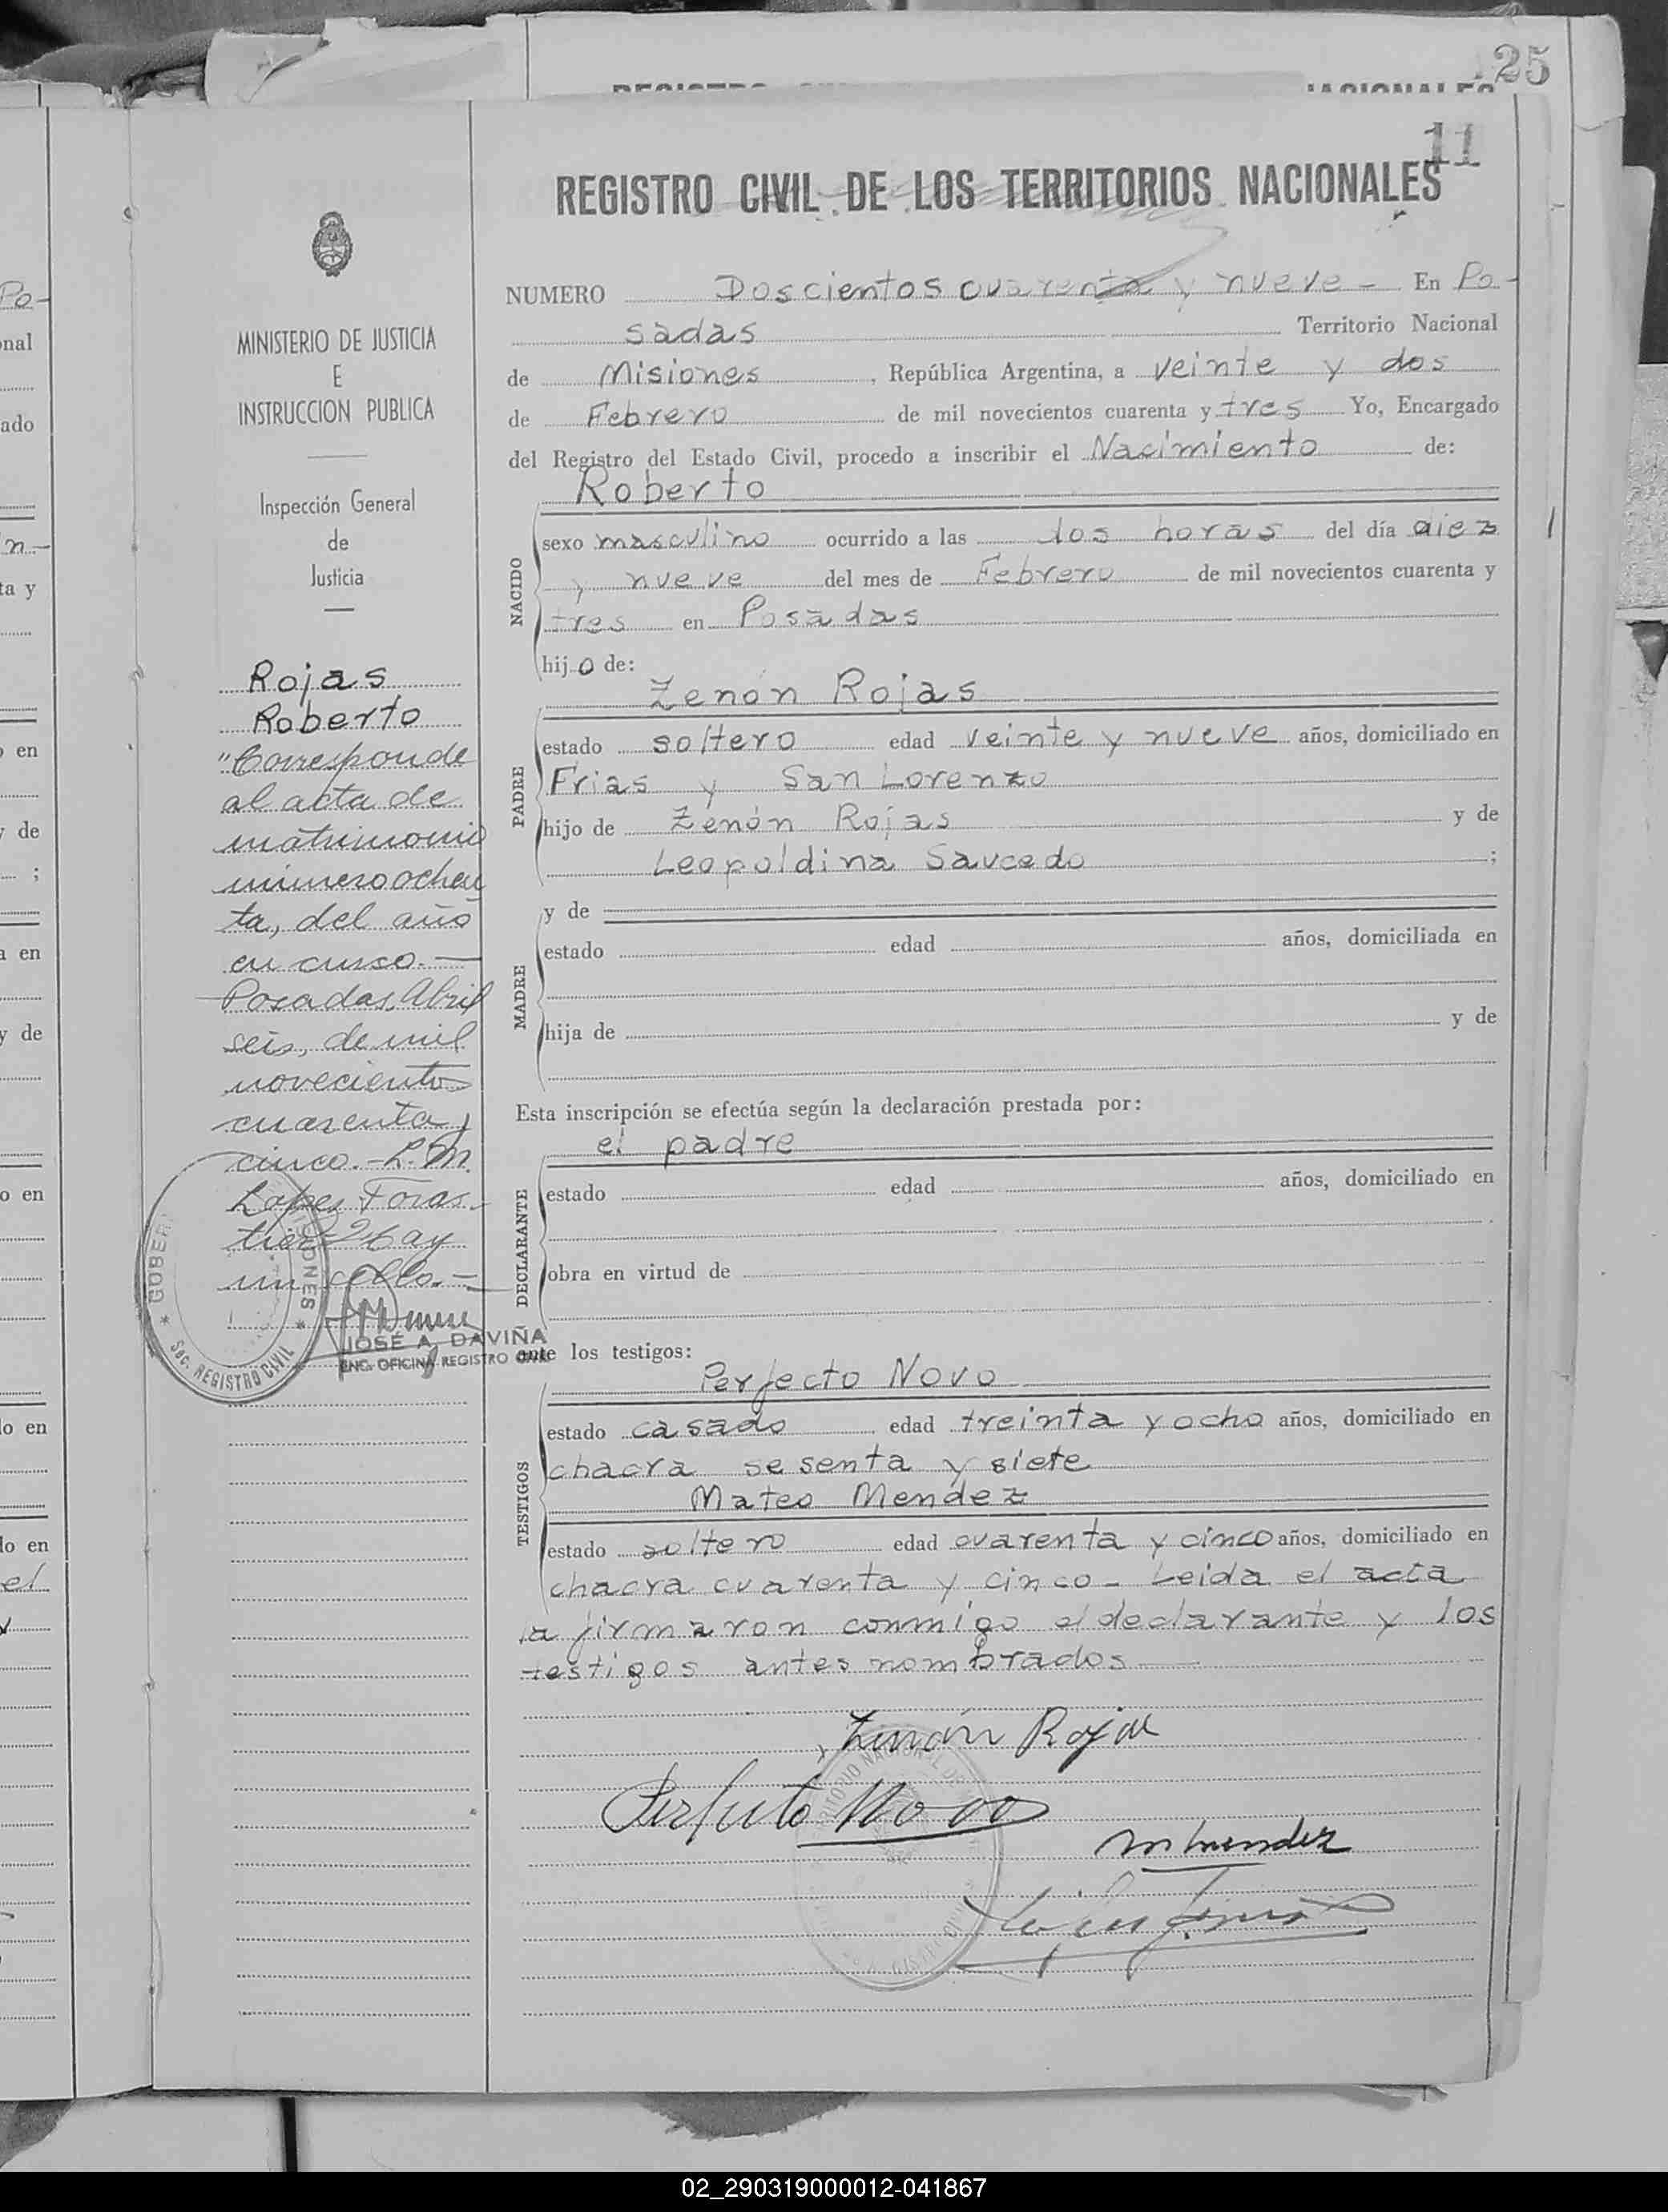 25
11
REGISTRO CIVIL DE LOS TERRITORIOS NACIONALES
MINISTERIO DE JUSTICIA
E
INSTRUCCION PUBLICA
Inspección General
de
Justicia
Rojas
Roberto
"Corresponde
al acta de
matrimonio
número ochen
ta, del año
en curso.—
Posadas, Abril
seis, de mil
novecientos
cuarenta y
cinco.- L. M.
Lopez Foras-
tier- Hay
un sello.—
JOSÉ A. DAVIÑA
ENC. OFICINA REGISTRO CIVIL
Sec. REGISTRO CIVIL
NUMERO Doscientos cuarenta y nueve - En Po-
sadas Territorio Nacional
de Misiones, República Argentina, a veinte y dos
de Febrero de mil novecientos cuarenta y tres Yo, Encargado
del Registro del Estado Civil, procedo a inscribir el Nacimiento de:
Roberto
NACIDO
sexo masculino ocurrido a las dos horas del día diez
y nueve del mes de Febrero de mil novecientos cuarenta y
tres en Posadas
hijo de:
Zenón Rojas
PADRE
estado soltero edad veinte y nueve años, domiciliado en
Frias y San Lorenzo
hijo de Zenón Rojas y de
Leopoldina Saucedo ;
MADRE
y de
estado edad años, domiciliada en
hija de y de
Esta inscripción se efectúa según la declaración prestada por:
el padre
DECLARANTE
estado edad años, domiciliado en
obra en virtud de
ante los testigos:
Perfecto Novo
TESTIGOS
estado casado edad treinta y ocho años, domiciliado en
chacra sesenta y siete
Mateo Mendez
estado soltero edad cuarenta y cinco años, domiciliado en
chacra cuarenta y cinco - Leida el acta
la firmaron conmigo el declarante y los
testigos antes nombrados
Zenón Rojas
Perfecto Novo
M Mendez
02_290319000012-041867